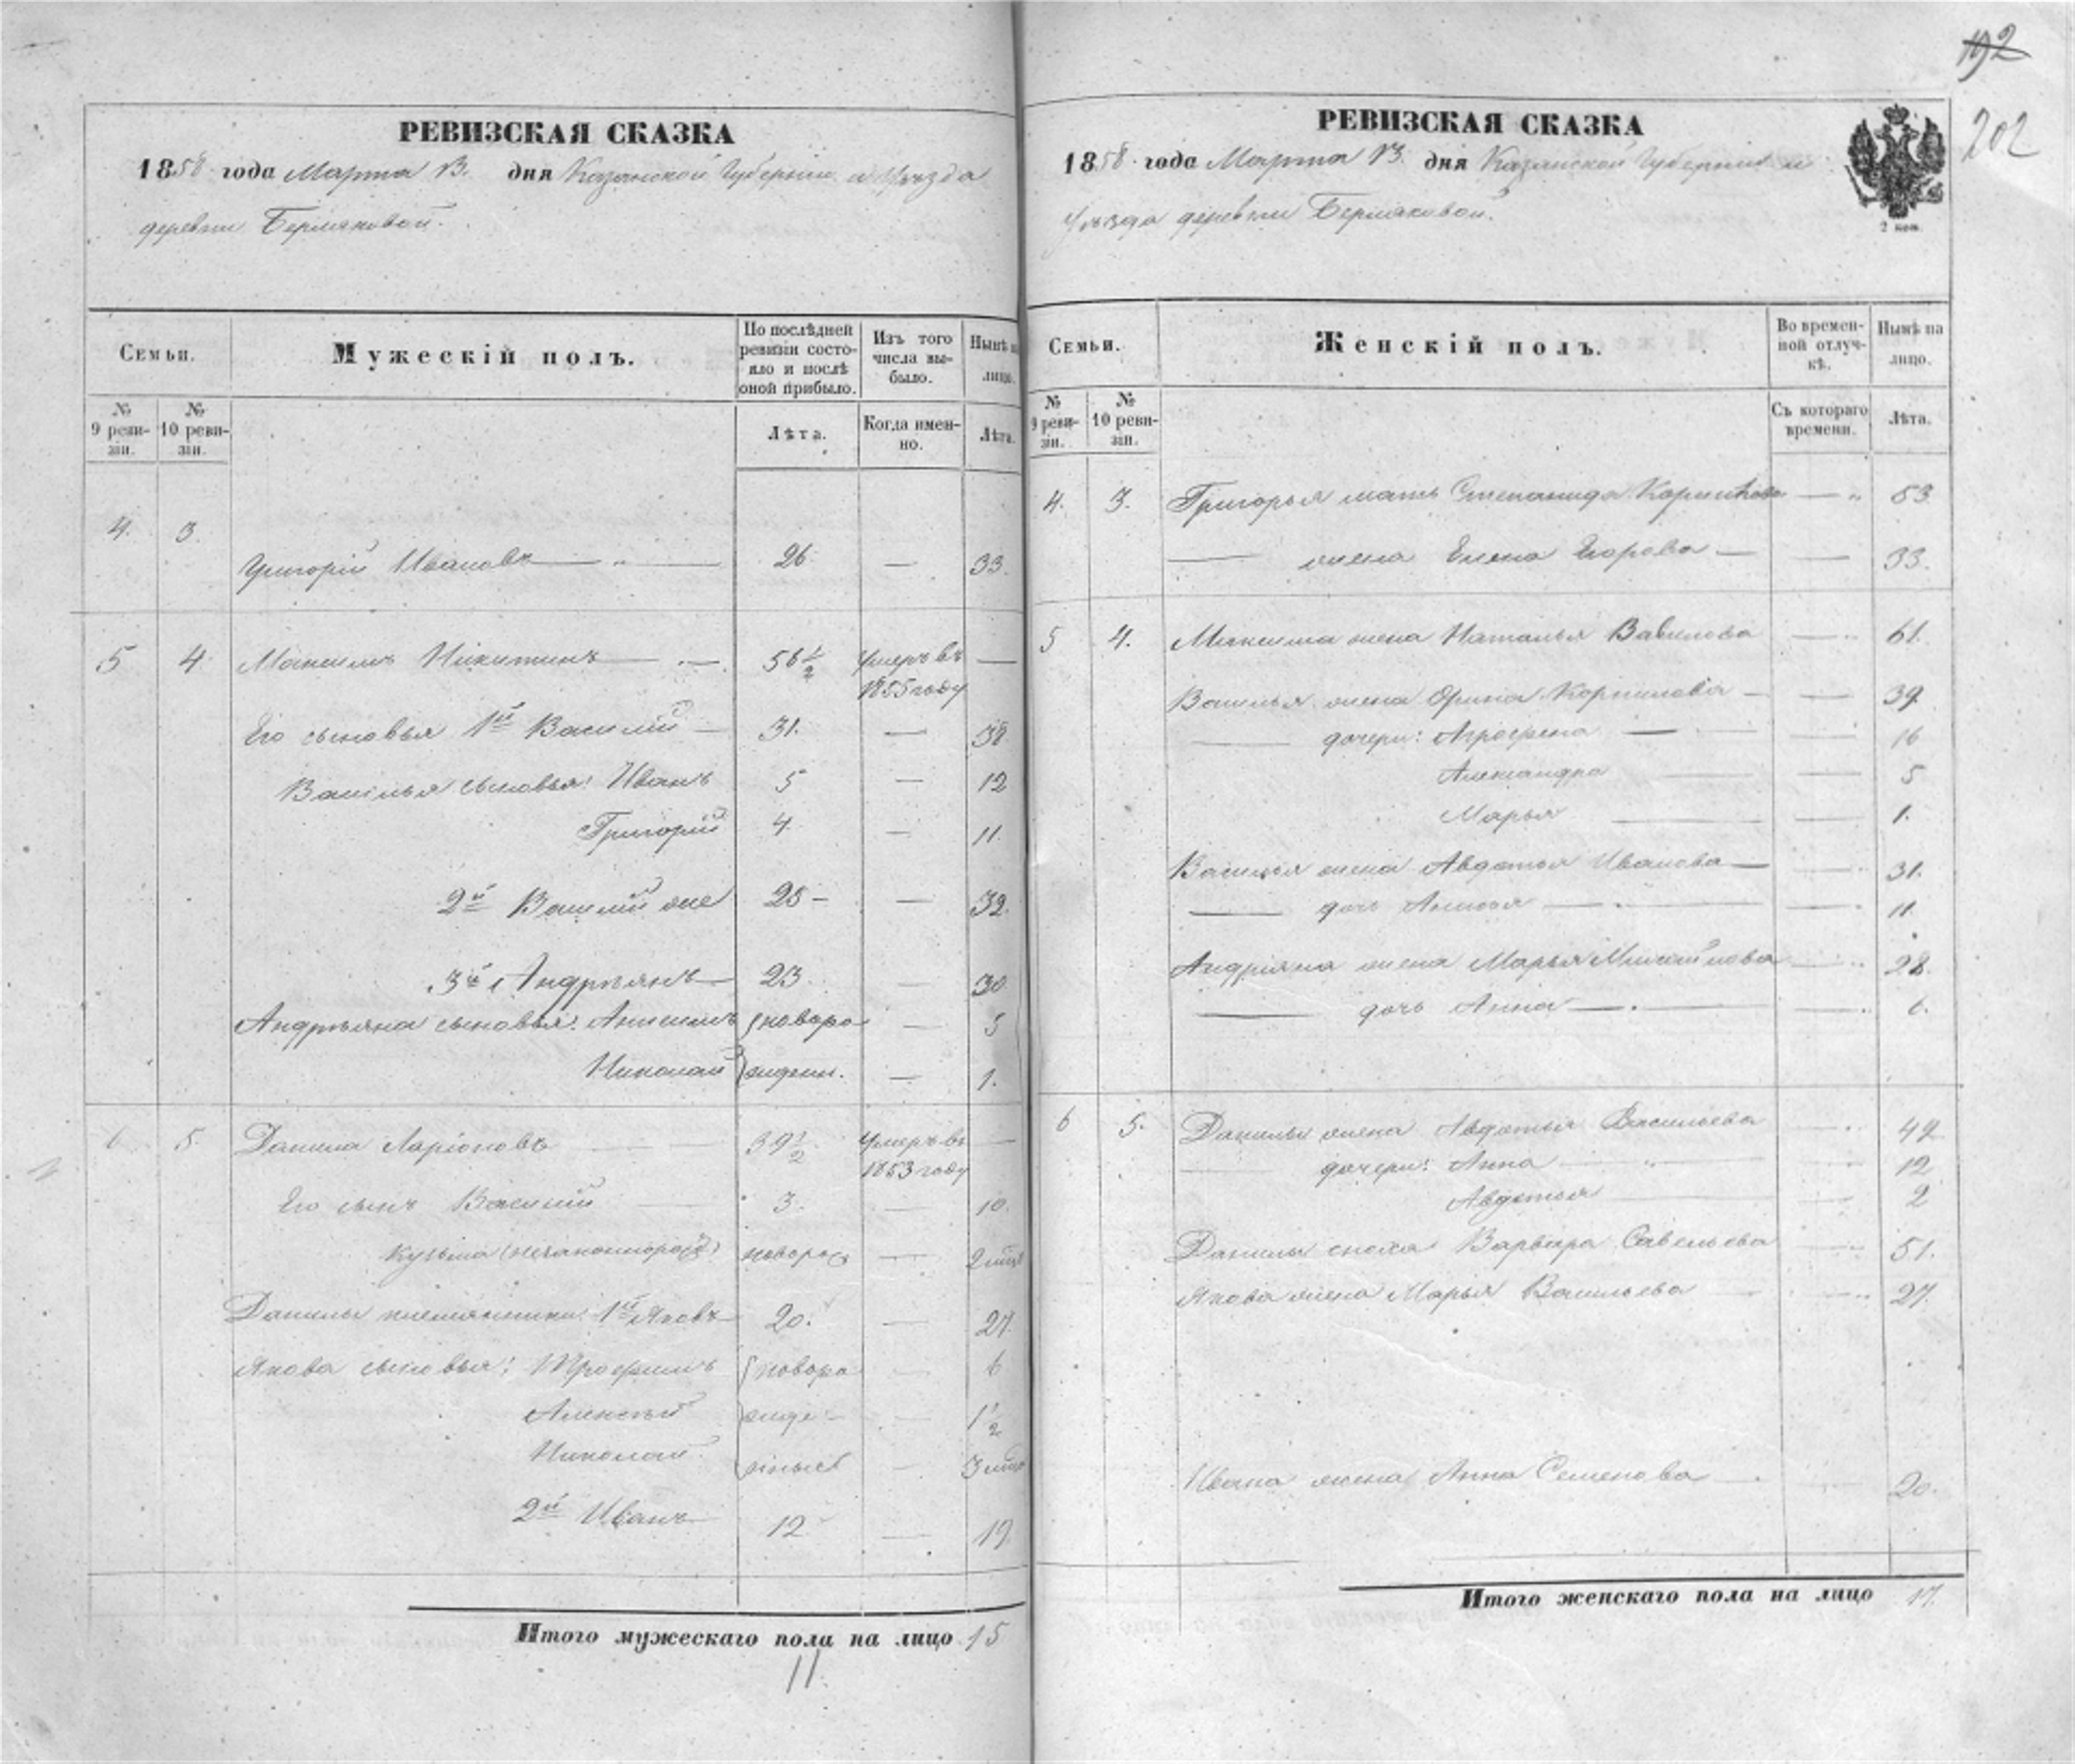 192
202
РЕВИЗСКАЯ СКАЗКА
1858 года Марта 13. дня Казанской Губерніи и Уѣзда
деревни Бермяковой.
Семьи.
Мужескій полъ.
По послѣдней ревизіи состояло и послѣ оной прибыло.
Изъ того числа выбыло.
Нынѣ на лицо.
№ 9 ревизіи.
№ 10 ревизіи.
Лѣта.
Когда именно.
Лѣта.
4. 3. Григорій Ивановъ 26 — 33.
5 4 Максимъ Никитинъ 56 1/2 Умеръ въ 1855 году —
Его сыновья 1й Василій 31. — 38
Василья сыновья: Иванъ 5 — 12
Григорій 4. — 11.
2й Василій же 25 — — 32.
3й Андреянъ 23. — 30
Андреяна сыновья: Анисимъ новоро — 5
Николай жден. — 1.
6 5. Данила Ларіоновъ 39 1/2 Умеръ въ 1853 году —
Его сынъ Василій 3. — 10.
Кузьма (незаконнорожд) новорож —
Данилы племянники 1й Яковъ 20. — 27.
Якова сыновья: Трофимъ новоро — 6
Алексѣй жде — 1 1/2
Николай. —
2й Иванъ 12 — 19.
Итого мужескаго пола на лицо 15
11.
РЕВИЗСКАЯ СКАЗКА
1858 года Марта 13. дня Казанской Губерніи и
Уѣзда деревни Бермяковой.
2 коп.
Семьи.
Женскій полъ.
Во временной отлучкѣ.
Нынѣ на лицо.
№ 9 ревизіи.
№ 10 ревизіи.
Съ котораго времени.
Лѣта.
4. 3. Григорья мать Степанида — 53.
— жена Елена Егорова — — 33.
5 4. Максима жена Наталья Вавилова — 61.
Василья жена Орина Корнилова — — 39
— дочери: Агрофена — — 16
Александра — — 5
Марья — — 1.
Василья жена Авдотья Иванова — — 31.
— дочь — — 11
Андріяна жена Марья Михайлова — 28.
— дочь Анна — — 6.
6 5. Данилы жена Авдотья Васильева — 49
— дочери: Анна — — 12
Авдотья — — 2
Данилы сноха Варвара Савельева — 51.
Якова жена Марья Васильева — 27.
Ивана жена Анна Семенова — — 20.
Итого женскаго пола на лицо 17.